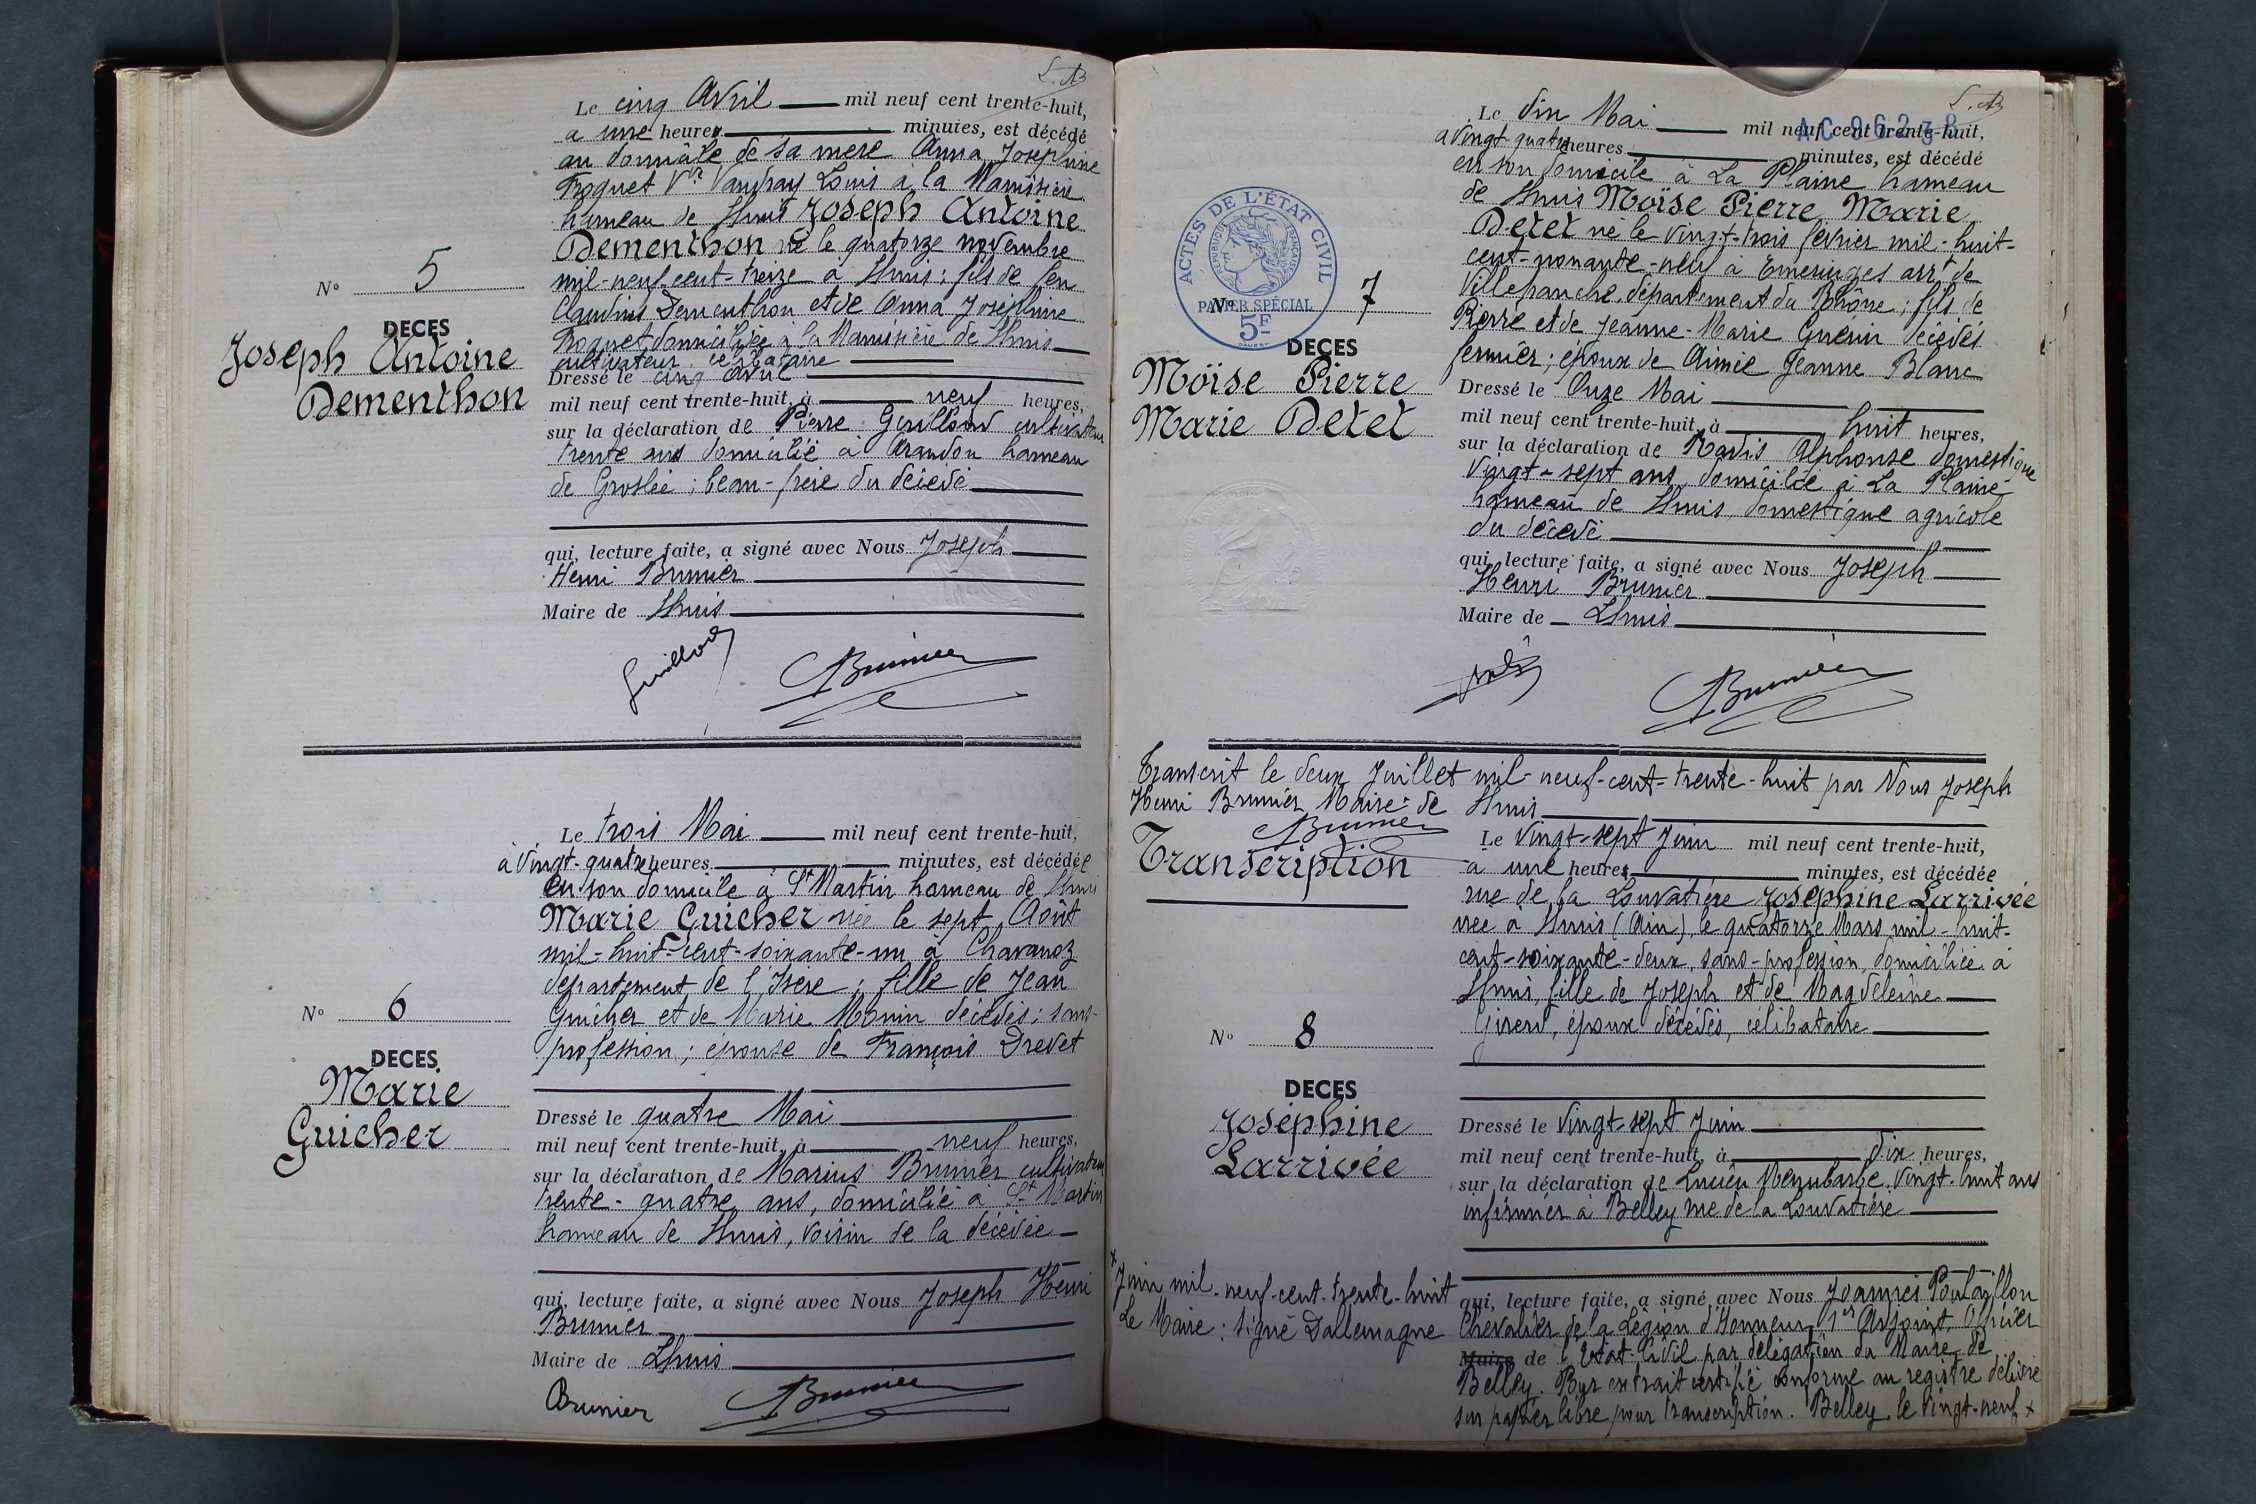 Le cinq Avril mil neuf cent trente-huit,
a une heures minutes, est décédé
au domicile de sa mère Anna Josephine
Troquet Vve Vaudray Louis à la
hameau de Lhuis Joseph Antoine
Dementhon né le quatorze novembre
mil-neuf-cent-treize à Lhuis; fils de feu
Claudius Dementhon et de Anna Joséphine
domiciliée à la de Lhuis
cultivateur célibataire
Dressé le cinq avril
mil neuf cent trente-huit, à neuf heures,
sur la déclaration de Pierre Guillond cultivateur
trente ans domicilié à Arandon hameau
de Groslée; beau-frère du décédé
qui, lecture faite, a signé avec Nous Joseph
Henri Brunier
Maire de Lhuis
Brunier
No 5
DECES
Joseph Antoine
Dementhon
Le trois Mai mil neuf cent trente-huit,
à vingt-quatre heures minutes, est décédée
en son domicile à St Martin hameau de Lhuis
Marie Guicher née le sept Août
mil-huit-cent-soixante-un à Chavanoz
département de l'Isère; fille de Jean
Guicher et de Marie décédés; sans-
profession; épouse de François Drevet
Dressé le quatre Mai
mil neuf cent trente-huit, à neuf heures,
sur la déclaration de Marius Brunier cultivateur
trente-quatre ans, domicilié à St Martin
hameau de Lhuis, voisin de la décédée
qui, lecture faite, a signé avec Nous Joseph Henri
Brunier
Maire de Lhuis
Brunier Brunier
No 6
DECES
Marie
Guicher
AC 96238
Le dix Mai mil neuf cent trente-huit,
a vingt quatre heures minutes, est décédé
en son domicile à La Plaine hameau
de Lhuis Moïse Pierre Marie
Detet né le vingt-trois février mil-huit-
cent-nonante-neuf à Emeringes arrt de
Villefranche, département du Rhône; fils de
Pierre et de Jeanne-Marie Guérin décédés
fermier; époux de Aimée Jeanne Blanc
Dressé le Onze Mai
mil neuf cent trente-huit, à huit heures,
sur la déclaration de Radis Alphonse domestique
vingt-sept ans, domicilié à La Plaine
hameau de Lhuis, domestique agricole
du décédé
qui, lecture faite, a signé avec Nous Joseph
Henri Brunier
Maire de Lhuis
Brunier
ACTES DE L'ÉTAT CIVIL
RÉPUBLIQUE FRANÇAISE
PAPIER SPÉCIAL
5F
No 7
DECES
Moïse Pierre
Marie Detet
Transcrit le deux Juillet mil-neuf-cent-trente-huit par Nous Joseph
Henri Brunier Maire de Lhuis
Brunier
Transcription
Le vingt-sept Juin mil neuf cent trente-huit,
a une heures minutes, est décédée
rue de la Louvatière Joséphine Larrivée
née à Lhuis (Ain), le quatorze Mars mil-huit-
cent-soixante-deux, sans-profession, domiciliée à
Lhuis, fille de Joseph et de Magdeleine
Girerd, époux décédés, célibataire
Dressé le vingt-sept Juin
mil neuf cent trente-huit, à dix heures,
sur la déclaration de Lucien vingt-huit ans
infirmier à Belley rue de la Louvatière
qui, lecture faite, a signé avec Nous Joannès
Chevalier de la Légion d'Honneur, 1er Adjoint, Officier
Maire de l'Etat-Civil par délégation du Maire de
Belley. Pour extrait certifié conforme au registre délivré
sur papier libre pour transcription. Belley, le vingt-neuf x
No 8
DECES
Joséphine
Larrivée
x Juin mil-neuf-cent-trente-huit
Le Maire: signé Dallemagne